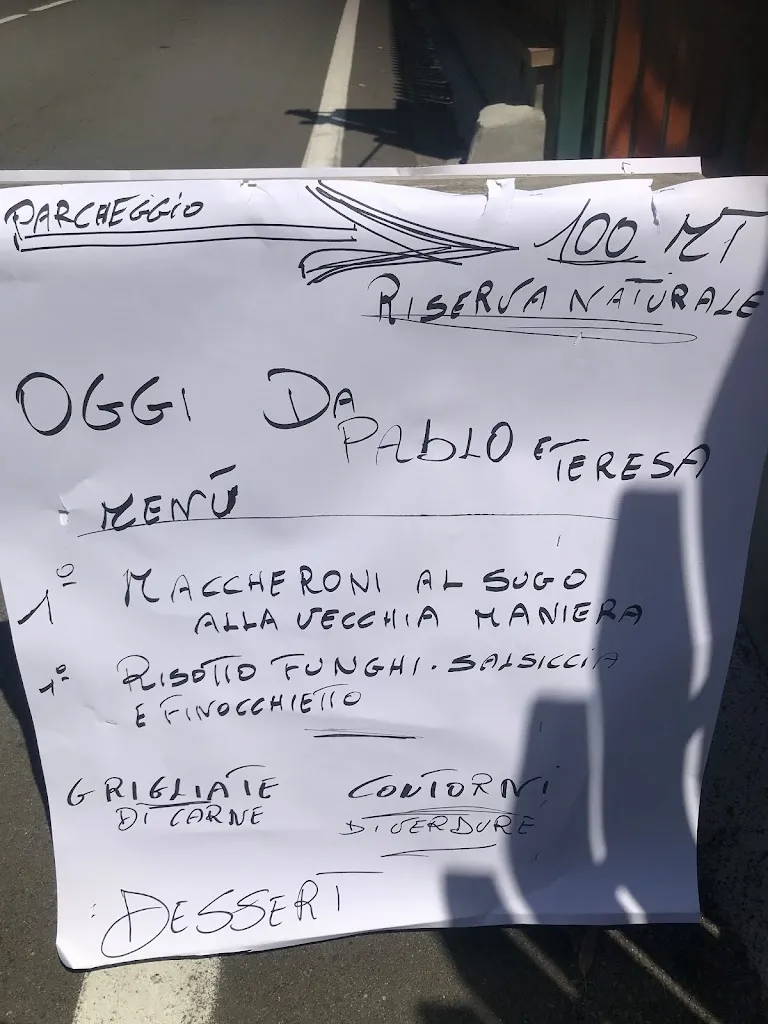 PARCHEGGIO 100 MT
RISERVA NATURALE
OGGI DA
PABLO E TERESA
MENÙ
1° MACCHERONI AL SUGO
ALLA VECCHIA MANIERA
1° RISOTTO FUNGHI. SALSICCIA
E FINOCCHIETTO
GRIGLIATE CONTORNI
DI CARNE DI VERDURE
DESSERT